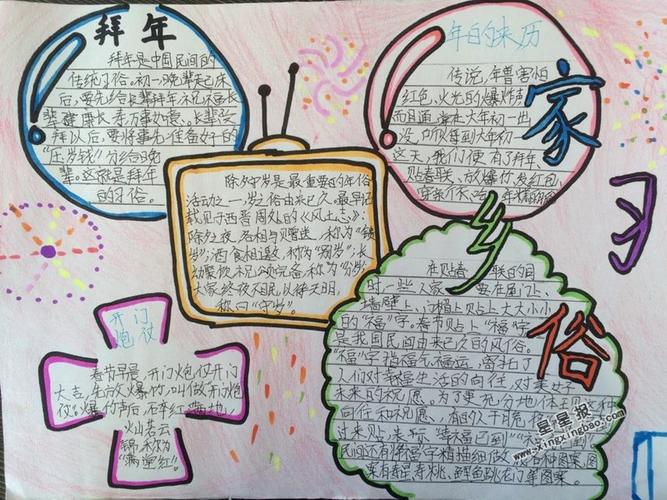 拜年
拜年是中国民间的
传统习俗。初一晚辈起床
后，要先给长辈拜年，祝长
辈健康长寿，万事如意。长辈受
拜以后，要将事先准备好的
“压岁钱”分给晚
辈。这就是拜年
的习俗。
年的来历
传说，年兽害怕
红色，火光和爆炸声，
而且通常在大年初一出
没，所以每到大年初一
这天，我们便有了拜年、
贴春联、放爆竹、发红包、
除夕守岁是最重要的年俗
活动之一，守岁之俗由来已久。最早记
载见于西晋周处的《风土志》：
除夕之夜，各相与赠送，称为“馈
岁”；酒食相邀，称为“别岁”；长
幼聚饮，祝颂完备，称为“分岁”；
大家终夜不眠，以待天明，
称曰“守岁”。
家
乡
习
俗
开门
炮仗
春节早晨，开门炮仗开门
大吉，先放爆竹，叫做开门炮
仗。爆竹声后，碎红满地，
灿若云
锦，称为
“满堂红”。
在贴春联的同
时，一些人家要在屋门上、
墙壁上、门楣上贴上大大小小
的“福”字。春节贴上“福”字，
是我国民间由来已久的风俗。
“福”字指福气、福运，寄托了
人们对幸福生活的向往，对美好
未来的祝愿。为了更充分地体现这种
向往和祝愿，有的人干脆将
过来贴，表示“幸福已到”“福气已到”
民间还有将福字精描细做成各种图案，图
案有寿星、寿桃、鲤鱼跳龙门等图案。
星星报
www.xingxingbao.com